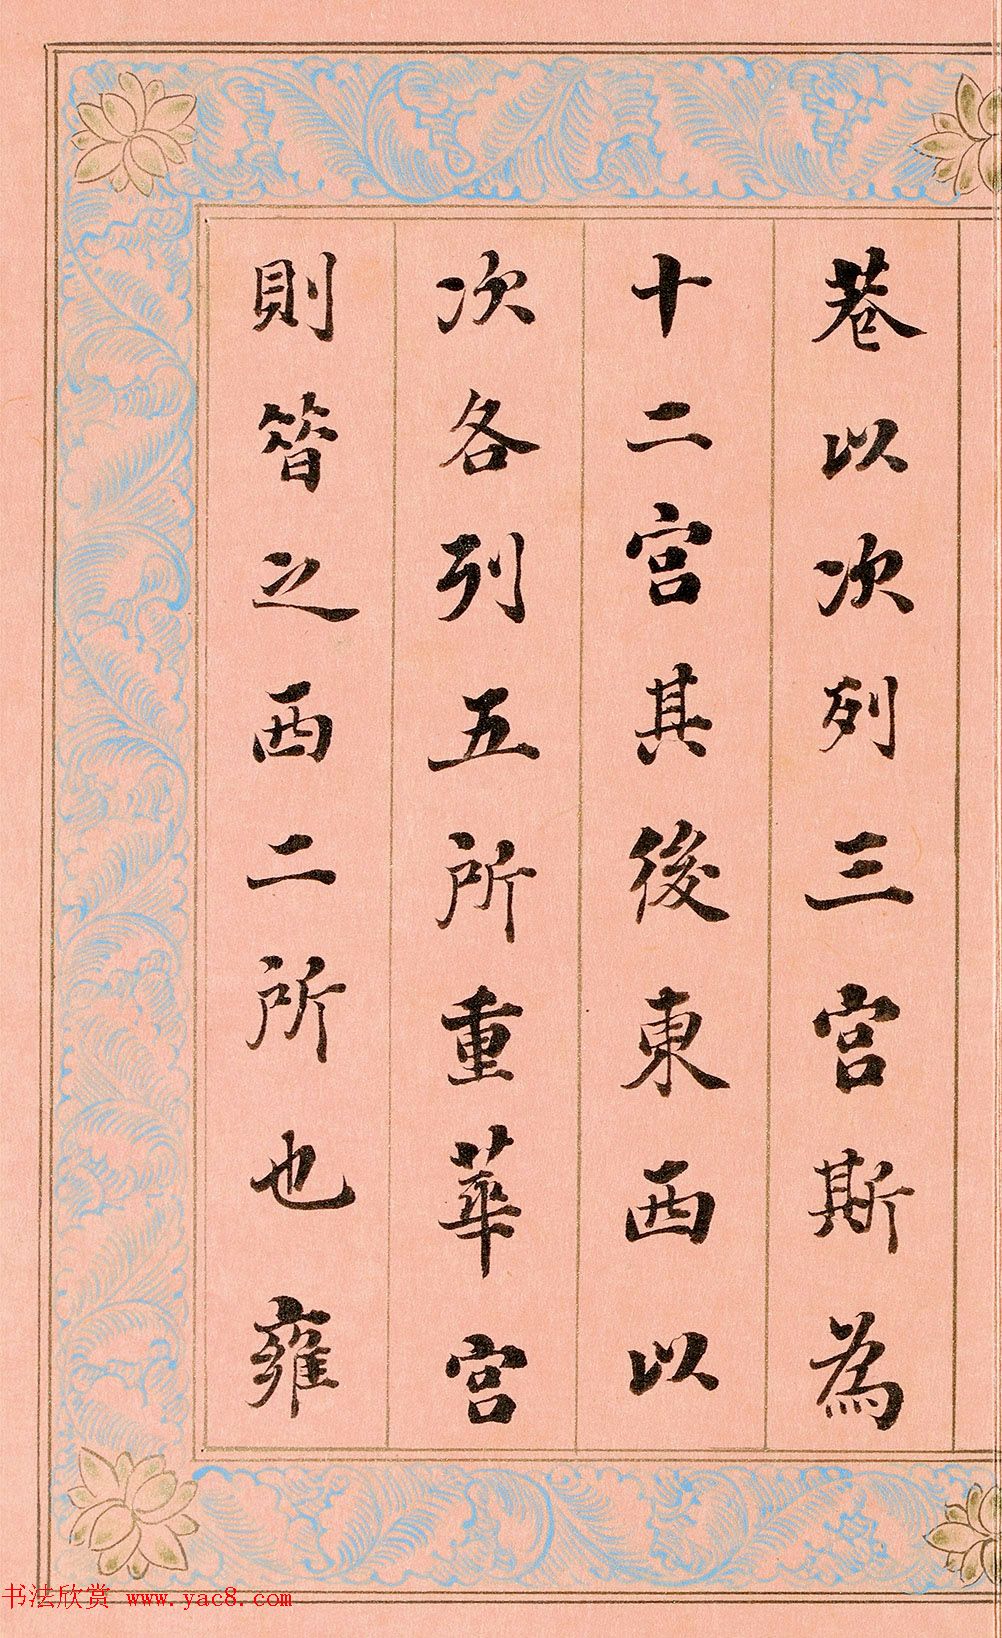 巷以次列三宮斯為
十二宮其後東西以
次各列五所重華宮
則昔之西二所也雍
书法欣赏 www.yac8.com